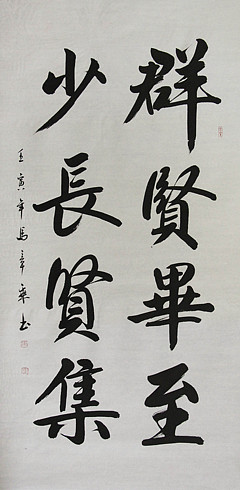 群賢畢至
少長賢集
壬寅年馬章书